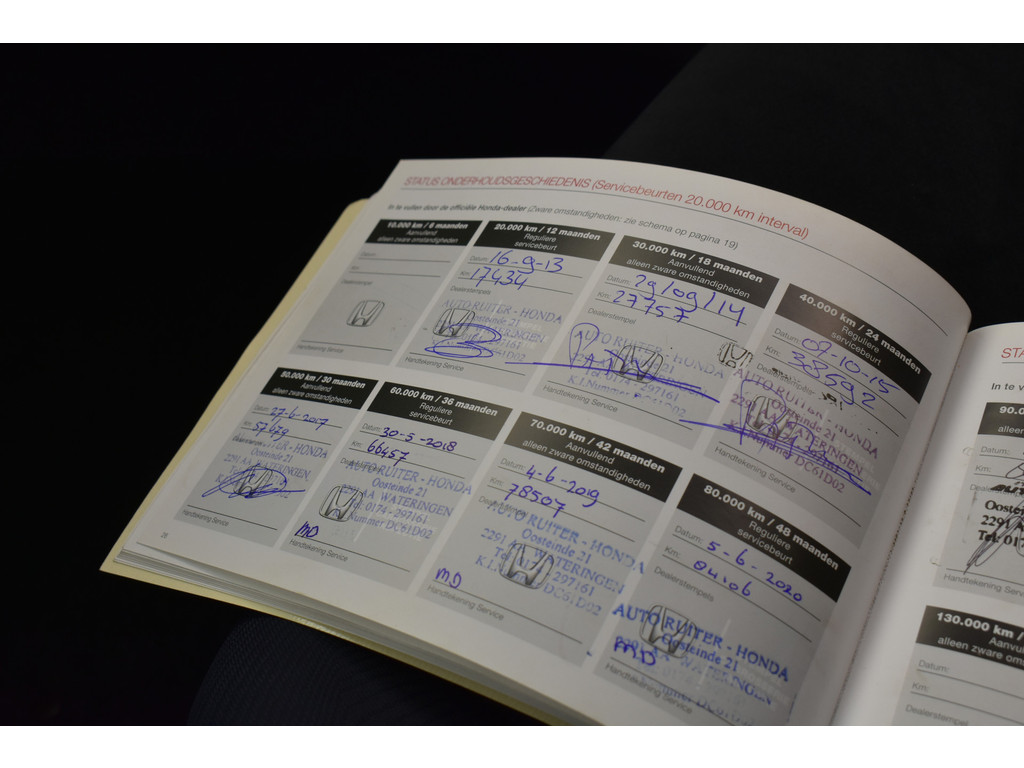 STATUS ONDERHOUDSGESCHIEDENIS (Servicebeurten 20.000 km interval)
In te vullen door de officiële Honda-dealer (Zware omstandigheden: zie schema op pagina 19)
10.000 km / 6 maanden
Aanvullend
alleen zware omstandigheden
Datum:
Km:
Dealerstempel
Handtekening Service
20.000 km / 12 maanden
Reguliere
servicebeurt
Datum: 16-9-13
Km: 17434
Dealerstempels
AUTO RUITER - HONDA
Oosteinde 21
WATERINGEN
297161
DC61D02
Handtekening Service
30.000 km / 18 maanden
Aanvullend
alleen zware omstandigheden
Datum: 29/09/14
Km: 27757
Dealerstempel
AUTO RUITER - HONDA
Oosteinde 21
WATERINGEN
Tel. 0174 - 297161
K.I.Nummer DC61D02
Handtekening Service
40.000 km / 24 maanden
Reguliere
servicebeurt
Datum: 09-10-15
Km: 38592
AUTO RUITER - HONDA
Oosteinde 21
2291 AA WATERINGEN
297161
K.I.Nummer DC61D02
Handtekening Service
50.000 km / 30 maanden
Aanvullend
alleen zware omstandigheden
Datum: 27-6-2017
Km: 57679
RUITER - HONDA
Oosteinde 21
2291 AA WATERINGEN
Handtekening Service
60.000 km / 36 maanden
Reguliere
servicebeurt
Datum: 30-5-2018
Km: 66457
AUTO RUITER - HONDA
Oosteinde 21
2291 AA WATERINGEN
Tel. 0174 - 297161
Nummer DC61D02
MD
Handtekening Service
70.000 km / 42 maanden
Aanvullend
alleen zware omstandigheden
Datum: 4-6-2019
Km: 78507
AUTO RUITER - HONDA
Oosteinde 21
2291 AA WATERINGEN
297161
K.I. DC61D02
M.D
Handtekening Service
80.000 km / 48 maanden
Reguliere
servicebeurt
Datum: 5-6-2020
Km:
Dealerstempels
AUTO RUITER - HONDA
Oosteinde 21
2291 AA WATERINGEN
297161
Nummer DC61D02
M.D
Handtekening Service
26
STA
In te v
90.0
alleen
Datum:
Km:
Deale
Oost
2291
Tel. 017
Handtekening S
130.000 km /
Aan
alleen zware om
Datum:
Km:
Dealerstempel